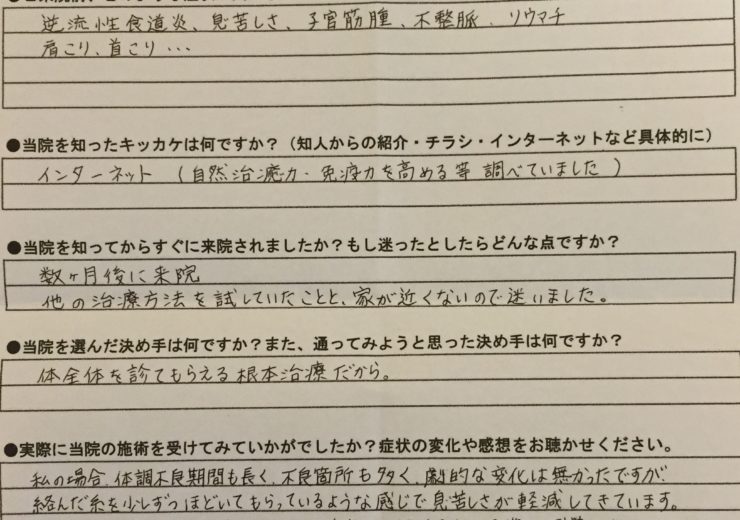 逆流性食道炎、息苦しさ、子宮筋腫、不整脈、リウマチ
肩こり、首こり・・・
●当院を知ったキッカケは何ですか？（知人からの紹介・チラシ・インターネットなど具体的に）
インターネット（自然治癒力・免疫力を高める等 調べていました）
●当院を知ってからすぐに来院されましたか？もし迷ったとしたらどんな点ですか？
数ヶ月後に来院
他の治療方法を試していたことと、家が近くないので迷いました。
●当院を選んだ決め手は何ですか？また、通ってみようと思った決め手は何ですか？
体全体を診てもらえる根本治療だから。
●実際に当院の施術を受けてみていかがでしたか？症状の変化や感想をお聴かせください。
私の場合、体調不良期間も長く、不良箇所も多く、劇的な変化は無かったですが、
絡んだ糸を少しずつほどいてもらっているような感じで息苦しさが軽減してきています。